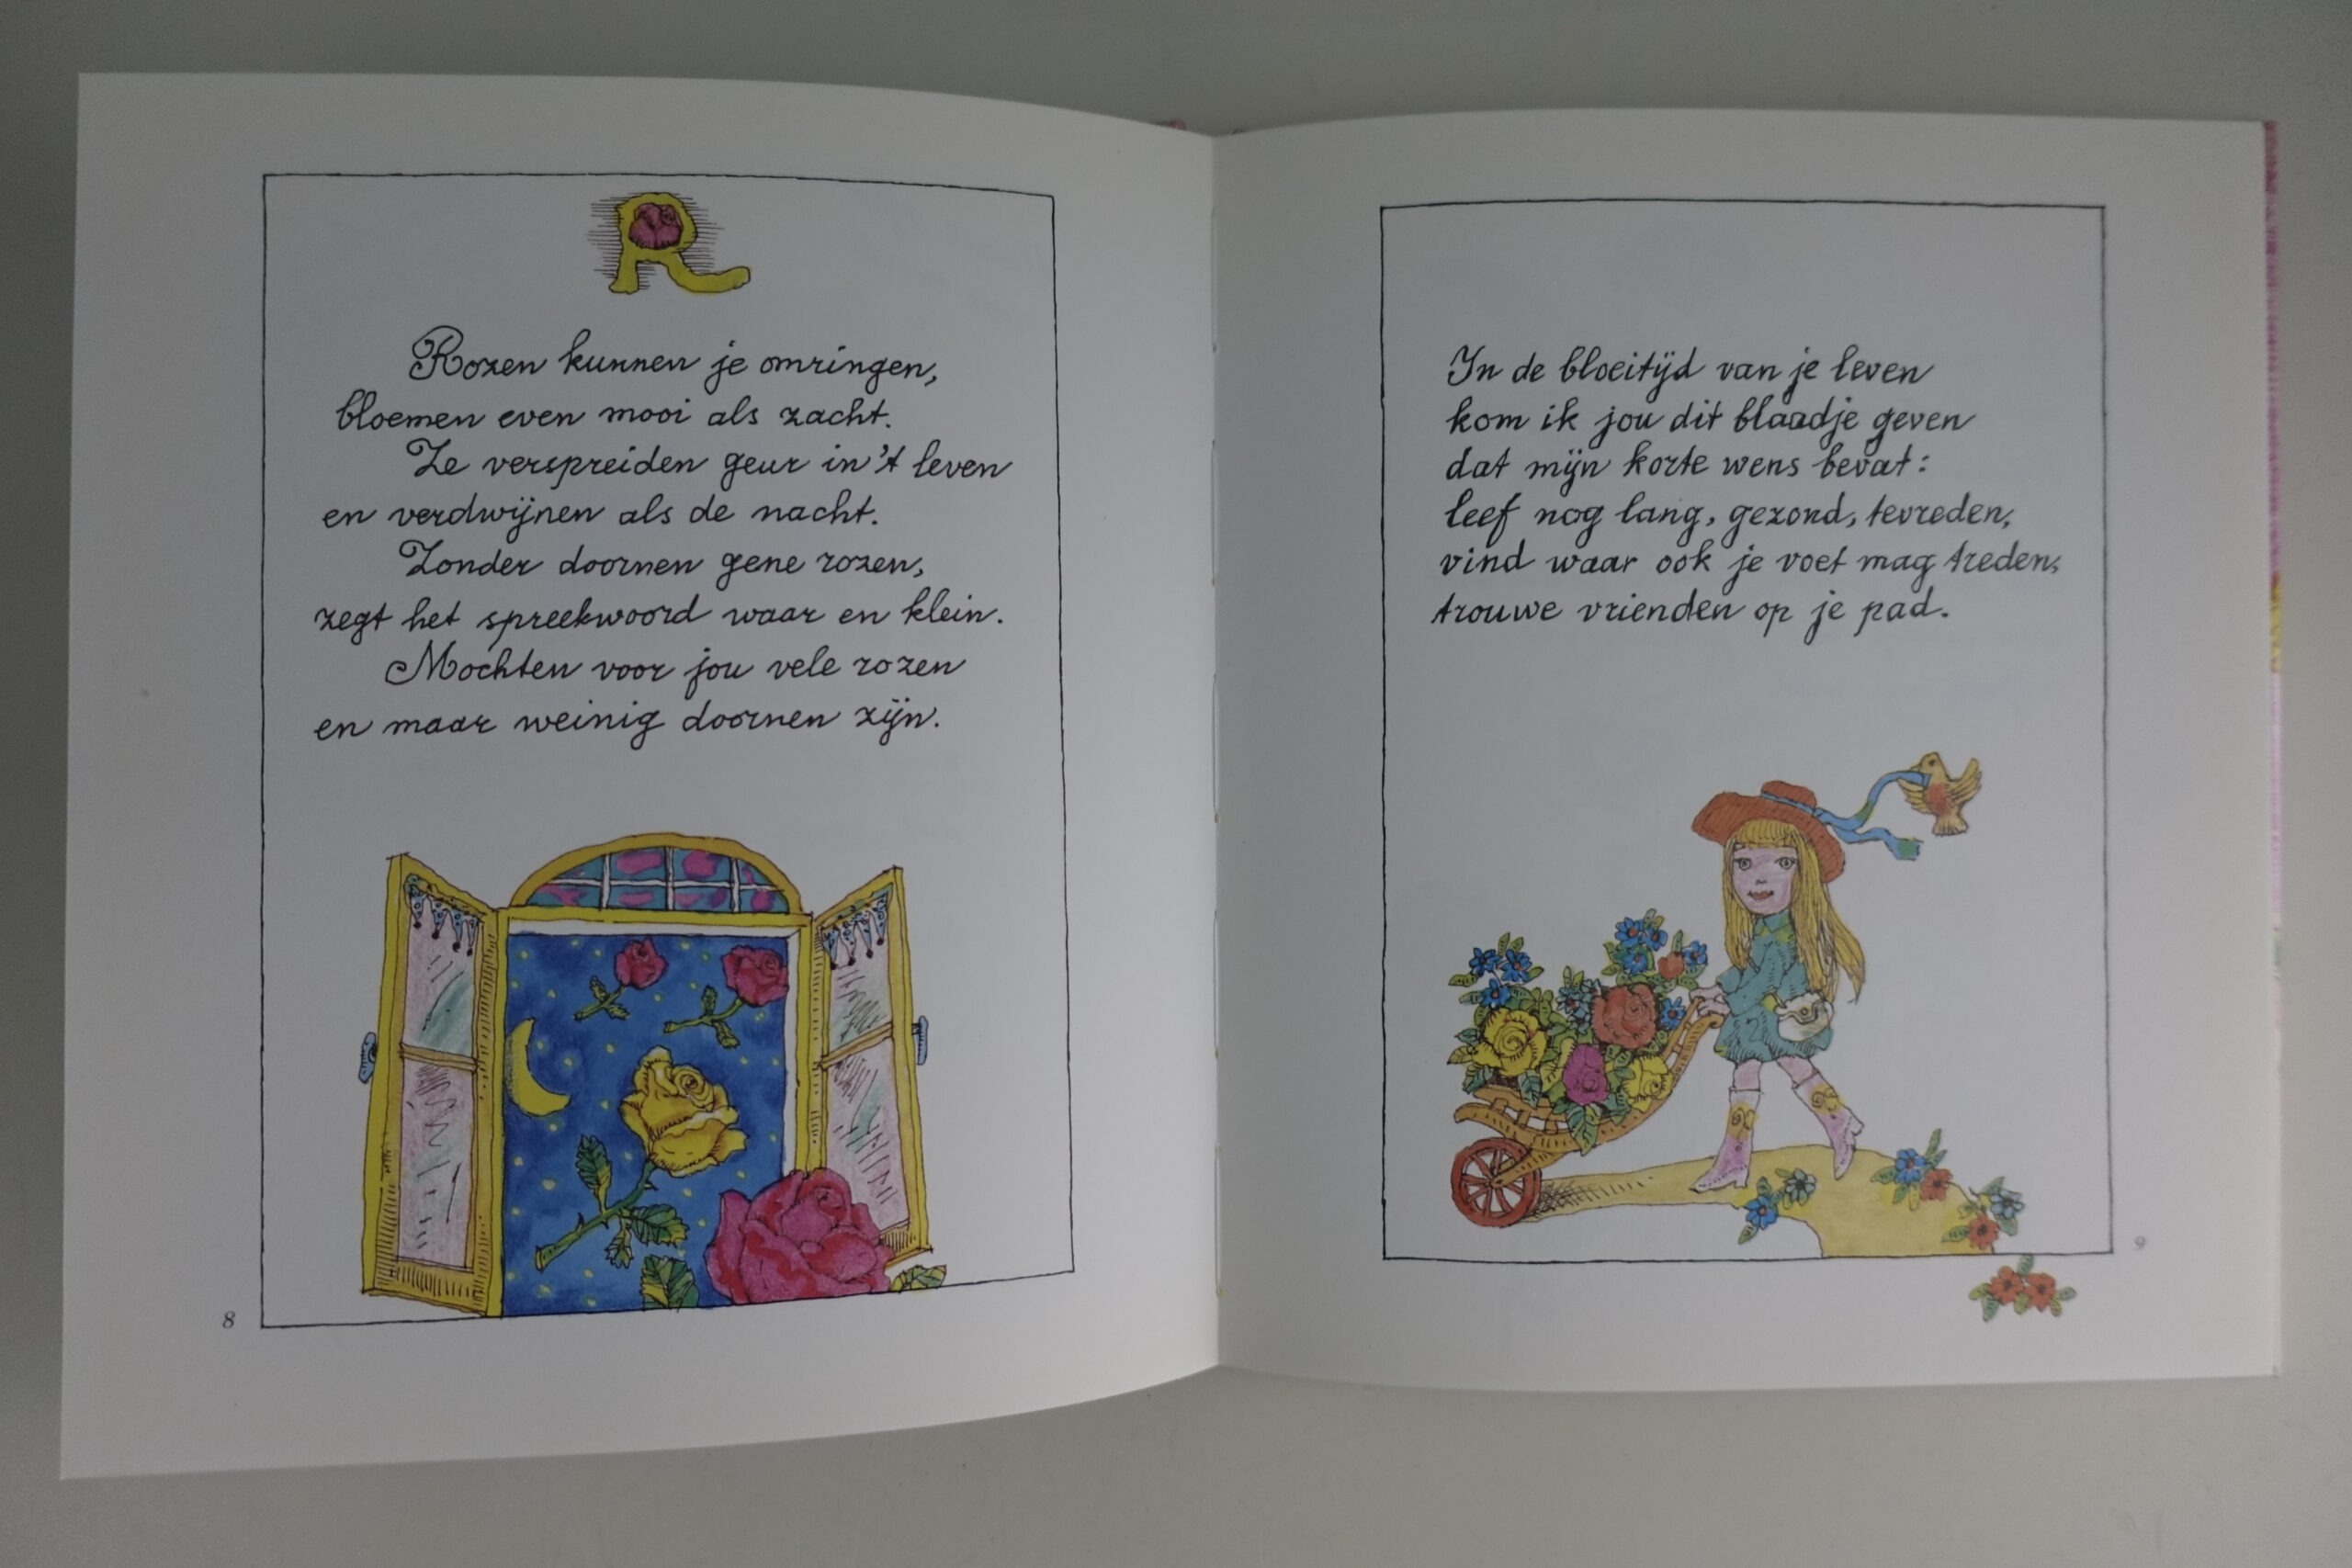 R
Rozen kunnen je omringen,
bloemen even mooi als zacht.
Ze verspreiden geur in 't leven
en verdwijnen als de nacht.
Zonder doornen gene rozen,
zegt het spreekwoord waar en klein.
Mochten voor jou vele rozen
en maar weinig doornen zijn.
8
In de bloeitijd van je leven
kom ik jou dit blaadje geven
dat mijn korte wens bevat:
leef nog lang, gezond, tevreden,
vind waar ook je voet mag treden,
trouwe vrienden op je pad.
9